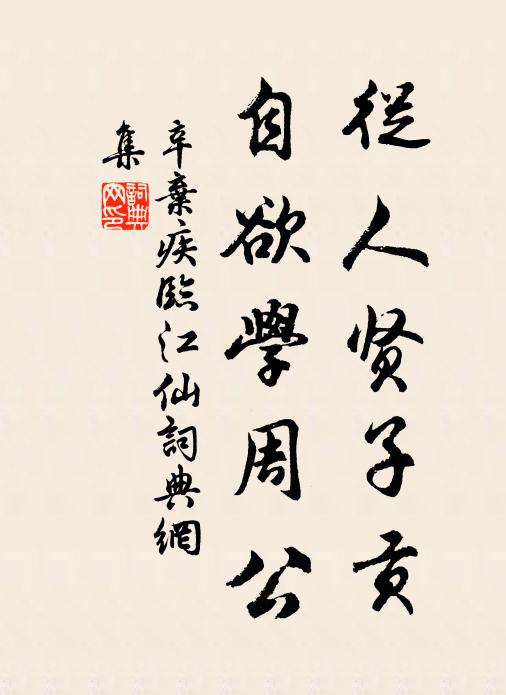 從人贤子贡
自欲學周公
辛棄疾臨江仙詞典網
集
詞典
网印